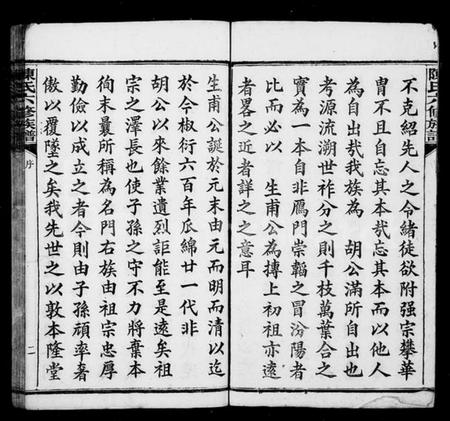 不克紹先人之令緒徒欲附强宗攀華
胄不且自忘其本哉忘其本而以他人
為自出哉我族為　胡公滿所自出也
考源流溯世祚分之則千枝萬葉合之
實為一本自非鴈門崇韜之冒汾陽者
比而必以　生甫公為摶上初祖亦遠
者畧之近者詳之之意耳
生甫公誕於元末由元而明而清以迄
於今椒衍六百年瓜綿廿一代非
胡公以來餘業遺烈詎能至是遠矣祖
宗之澤長也使子孫之守不力將棄本
徇末曷所稱為名門右族由祖宗忠厚
勤儉以成立之者今則由子孫頑率奢
傲以覆墜之矣我先世之以敦本隆堂
陳氏六修族譜
序
二
陳氏六修族譜